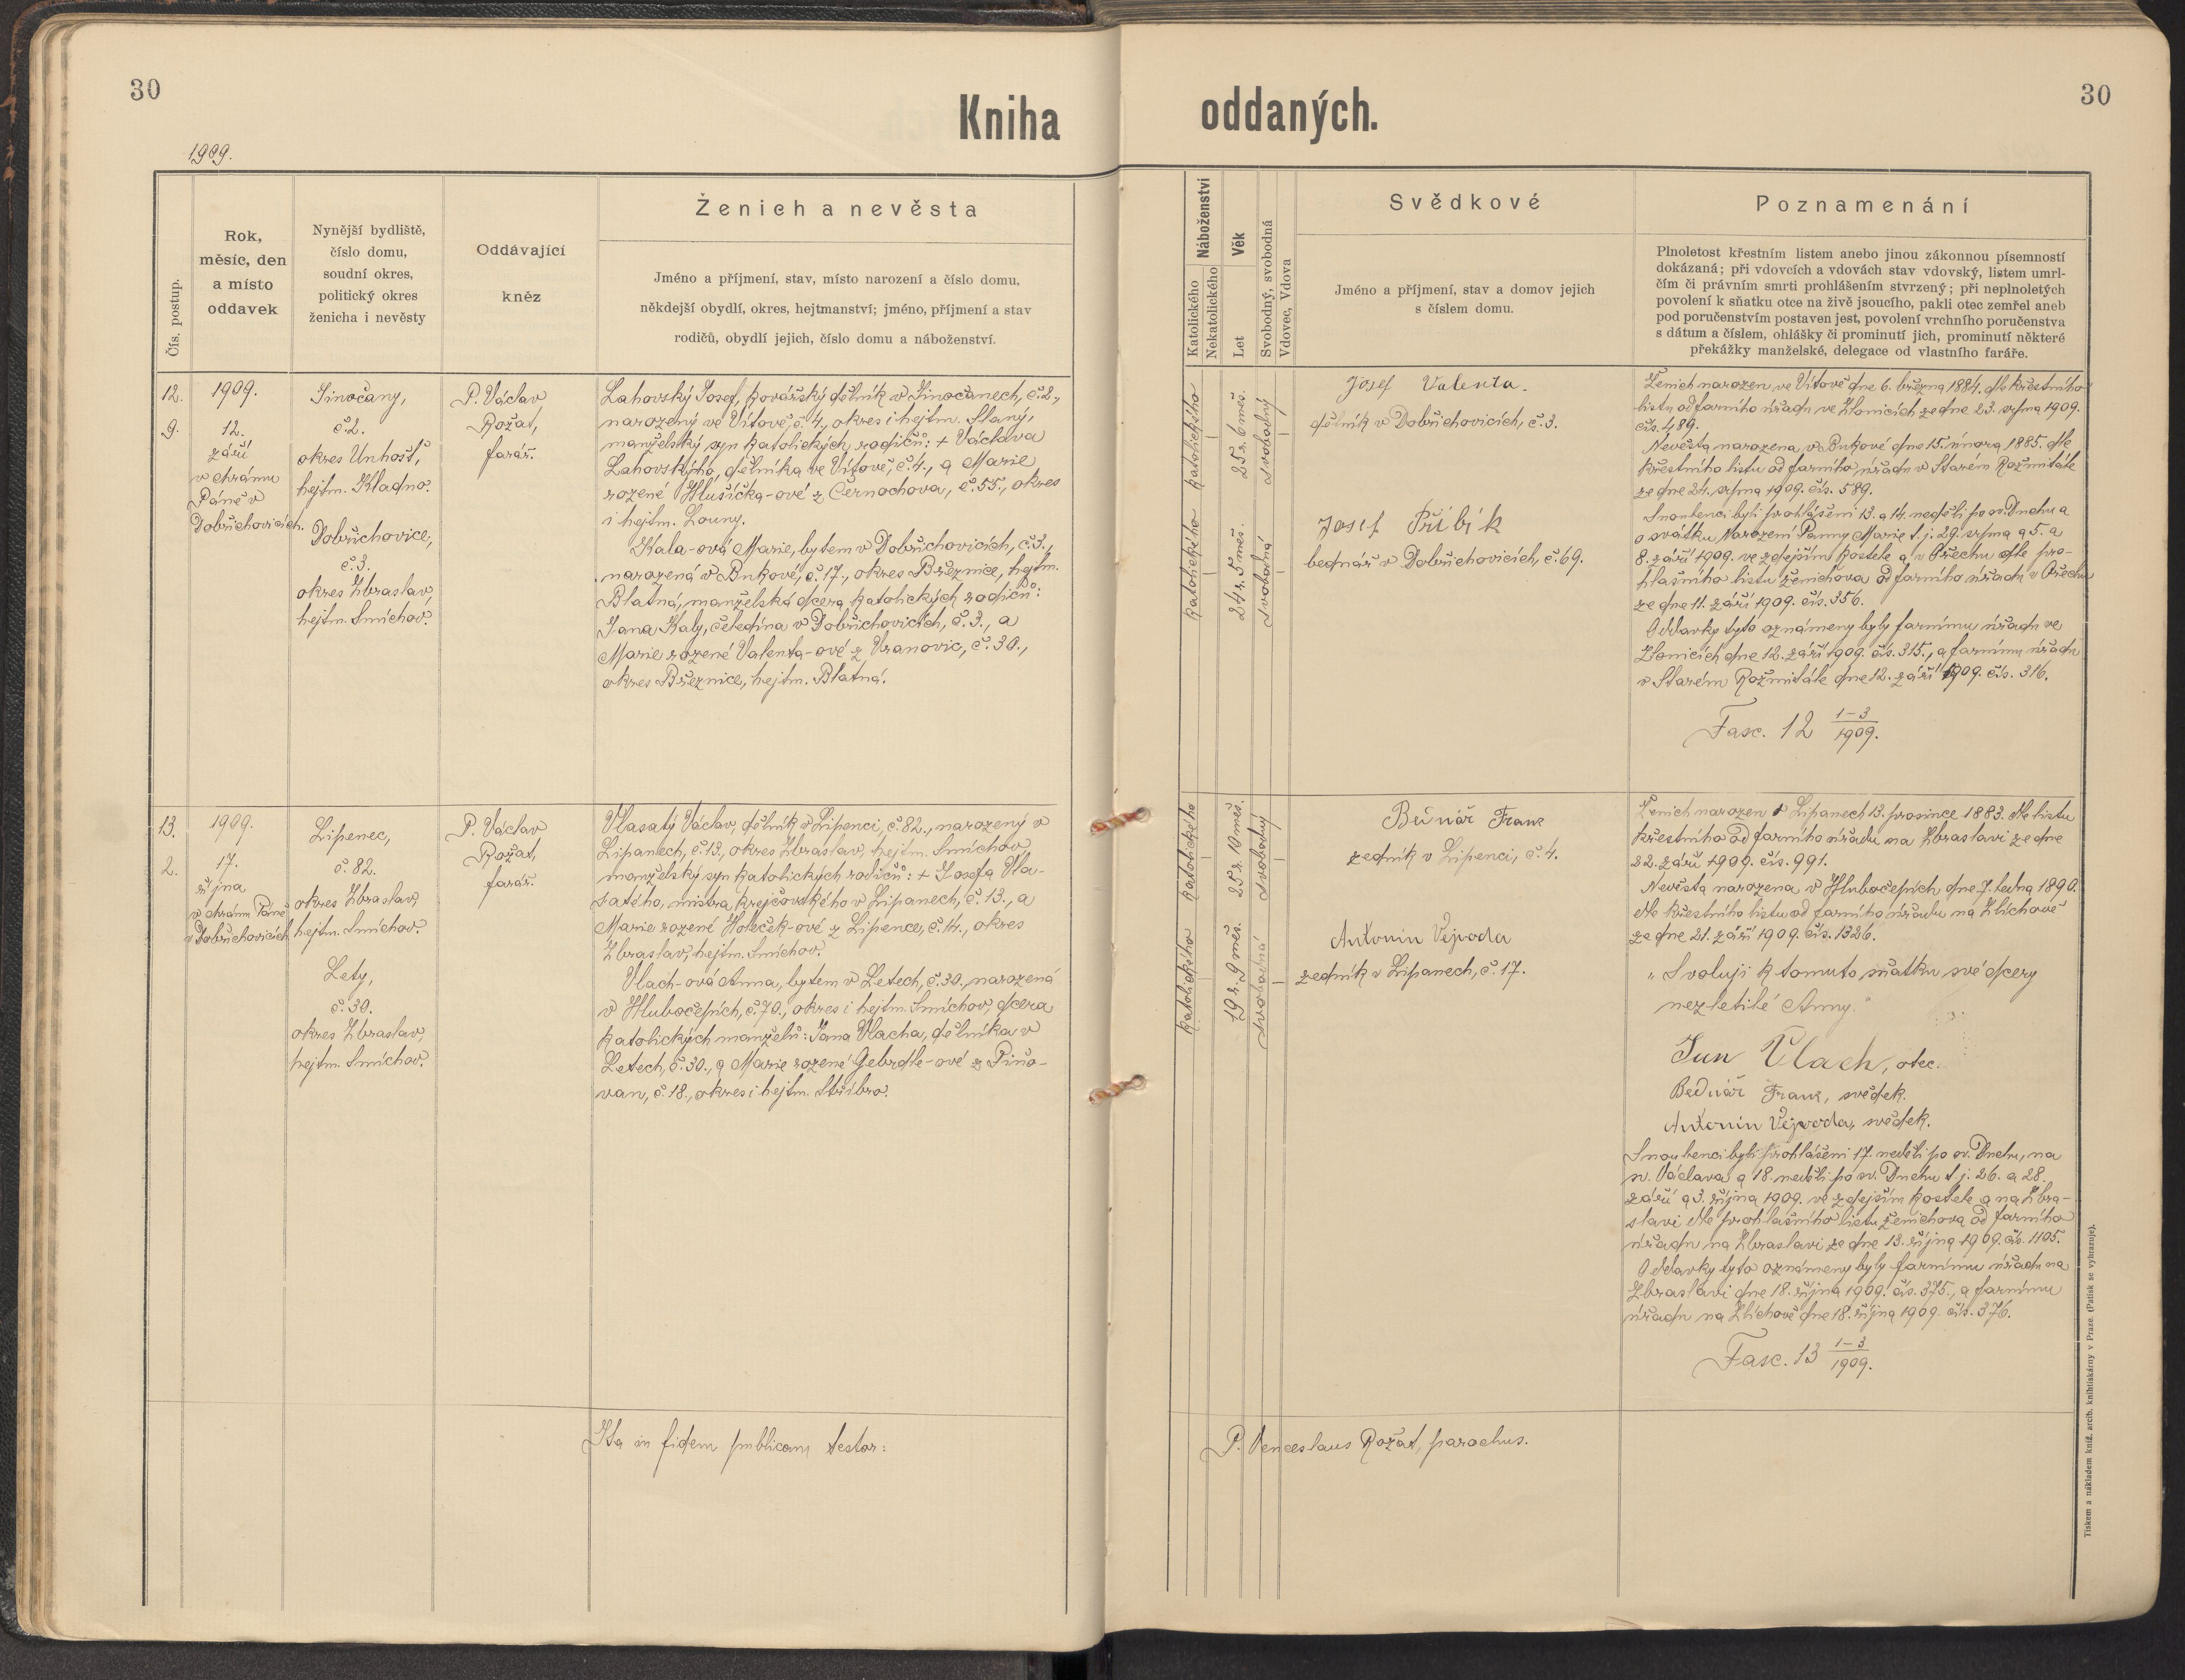 30
Kniha
oddaných.
30
1909.
Čís. postup.
Rok,
měsíc, den
a místo
oddavek
Nynější bydliště,
číslo domu,
soudní okres,
politický okres
ženicha i nevěsty
Oddávající
kněz
Ženich a nevěsta
Jméno a příjmení, stav, místo narození a číslo domu,
někdejší obydlí, okres, hejtmanství; jméno, příjmení a stav
rodičů, obydlí jejich, číslo domu a náboženství.
Náboženství
Katolického
Nekatolického
Věk
Let
Svobodný, svobodná
Vdovec, Vdova
Svědkové
Jméno a příjmení, stav a domov jejich
s číslem domu.
Poznamenání
Plnoletost křestním listem anebo jinou zákonnou písemností
dokázaná; při vdovcích a vdovách stav vdovský, listem umrl-
čím či právním smrti prohlášením stvrzený; při neplnoletých
povolení k sňatku otce na živě jsoucího, pakli otec zemřel aneb
pod poručenstvím postaven jest, povolení vrchního poručenstva
s dátum a číslem, ohlášky či prominutí jich, prominutí některé
překážky manželské, delegace od vlastního faráře.
12.
9.
1909.
12.
září
v chrámu
Páně v
Dobřichovicích.
Jinočany,
č. 2.
okres Unhošť,
hejtm. Kladno.
Dobřichovice,
č. 3.
okres Zbraslav,
hejtm. Smíchov.
P. Václav
Rožat,
farář.
Lahovský Josef, kovářský dělník v Jinočanech, č. 2.,
narozený ve Vítově, č. 4., okres i hejtm. Slaný,
manželský syn katolických rodičů: + Václava
Lahovského, dělníka ve Vítově, č. 4., a Marie
rozené Hlušička-ové z Černochova, č. 55., okres
i hejtm. Louny.
Kala-ová Marie, bytem v Dobřichovicích, č. 3.,
narozená v Bukové, č. 17., okres Březnice, hejtm.
Blatná, manželská dcera katolických rodičů:
Jana Kaly, čeledína v Dobřichovicích, č. 3., a
Marie rozené Valenta-ové z Vranovic, č. 30.,
okres Březnice, hejtm. Blatná.
Katolického
25 r. 6 měs.
Svobodný
Katolického
24 r. 5 měs.
Svobodná
Josef Valenta.
dělník v Dobřichovicích, č. 3.
Josef Přibík
bednář v Dobřichovicích, č. 69.
Ženich narozen ve Vítově dne 6. března 1884. dle křestního
listu od farního úřadu ve Zlonicích ze dne 23. srpna 1909.
čís. 489.
Nevěsta narozena v Bukové dne 15. února 1885. dle
křestního listu od farního úřadu v Starém Rožmitále
ze dne 24. srpna 1909. čís. 589.
Snoubenci byli prohlášeni 13. a 14. neděli po sv. Duchu a
o svátku Narození Panny Marie t. j. 29. srpna a 5. a
8. září 1909. ve zdejším kostele a v Ořechu dle pro-
hlašního listu ženichova od farního úřadu v Ořechu
ze dne 11. září 1909. čís. 356.
Oddavky tyto oznámeny byly farnímu úřadu ve
Zlonicích dne 12. září 1909. čís. 315., a farnímu úřadu
v Starém Rožmitále dne 12. září 1909. čís. 316.
Fasc. 12 1–3/1909.
13.
2.
1909.
17.
října
v chrámu Páně
v Dobřichovicích
Lipenec,
č. 82.
okres Zbraslav,
hejtm. Smíchov.
Lety,
č. 30.
okres Zbraslav,
hejtm. Smíchov.
P. Václav
Rožat,
farář.
Vlasatý Václav, dělník v Lipenci, č. 82., narozený v
Lipanech, č. 13., okres Zbraslav, hejtm. Smíchov,
manželský syn katolických rodičů: + Josefa Vla-
satého, mistra krejčovského v Lipanech, č. 13., a
Marie rozené Holeček-ové z Lipence, č. 14., okres
Zbraslav, hejtm. Smíchov.
Vlach-ová Anna, bytem v Letech, č. 30., narozená
v Hlubočepích, č. 70., okres i hejtm. Smíchov, dcera
katolických manželů: Jana Vlacha, dělníka v
Letech, č. 30., a Marie rozené Gebrdle-ové z Piňo-
van, č. 18., okres i hejtm. Stříbro.
Katolického
25 r. 10 měs.
Svobodný
Katolického
19 r. 9 měs.
Svobodná
Bednář Franz
zedník v Lipenci, č. 4.
Antonín Vejvoda
zedník v Lipanech, č. 17.
Ženich narozen v Lipanech 13. prosince 1883. dle listu
křestního od farního úřadu na Zbraslavi ze dne
22. září 1909. čís. 991.
Nevěsta narozena v Hlubočepích dne 7. ledna 1890.
dle křestního listu od farního úřadu na Zlíchově
ze dne 21. září 1909. čís. 1326.
„Svoluji k tomuto sňatku své dcery
nezletilé Anny."
Jan Vlach, otec.
Bednář Franz, svědek.
Antonín Vejvoda, svědek.
Snoubenci byli prohlášeni 17. neděli po sv. Duchu, na
sv. Václava a 18. neděli po sv. Duchu t. j. 26. a 28.
září a 3. října 1909. ve zdejším kostele a na Zbra-
slavi dle prohlašního listu ženichova od farního
úřadu na Zbraslavi ze dne 13. října 1909. čís. 1105.
Oddavky tyto oznámeny byly farnímu úřadu na
Zbraslavi dne 18. října 1909. čís. 375., a farnímu
úřadu na Zlíchově dne 18. října 1909. čís. 376.
Fasc. 13 1–3/1909.
Ita in fidem publicam testor:
P. Venceslaus Rožat, parochus.
Tiskem a nákladem kníž. arcib. knihtiskárny v Praze. (Patisk se vyhrazuje).